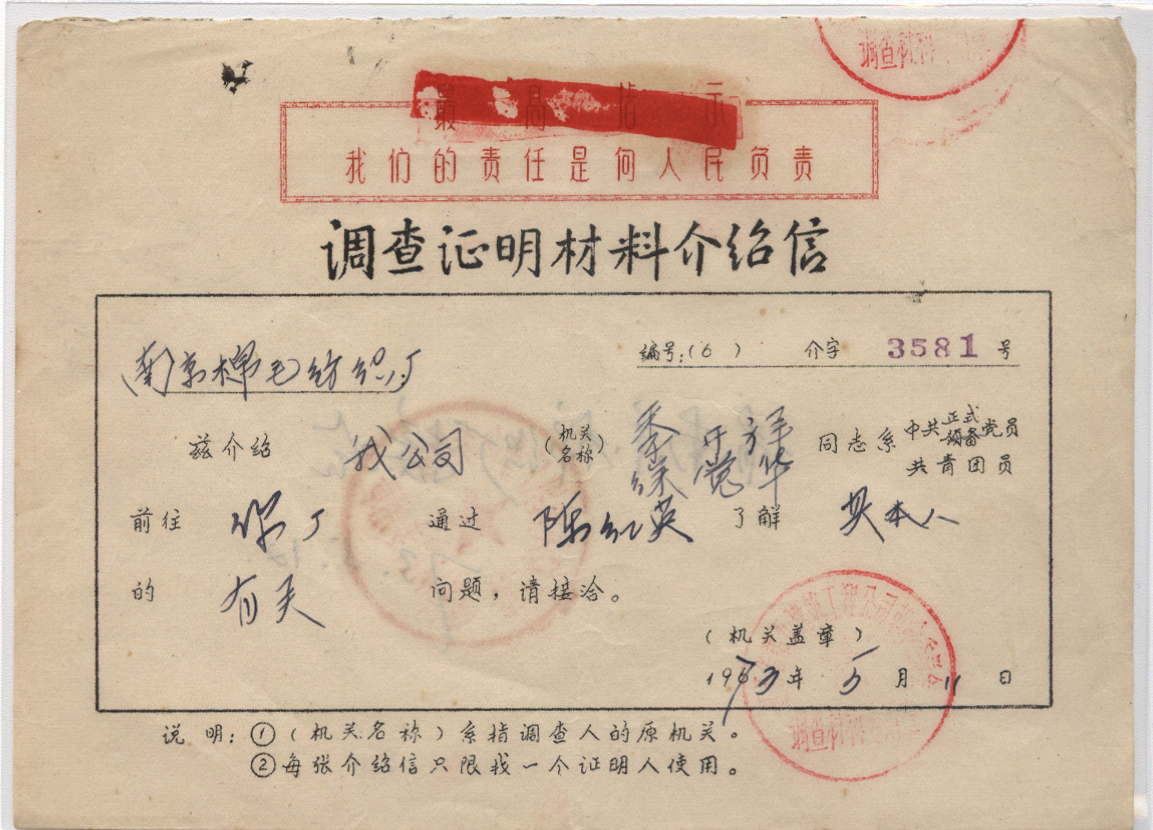 最高指示
我们的责任是向人民负责
调查证明材料介绍信
南京棉毛纺织厂
编号:(6) 介字 3581 号
兹介绍 我公司 (机关名称) 同志系 中共正式预备党员 共青团员
前往 你厂 通过 陈红英 了解 其本人
的 有关 问题,请接洽。
(机关盖章)
1973年 5 月 11 日
说明:①(机关名称)系指调查人的原机关。
②每张介绍信只限找一个证明人使用。
调查材料